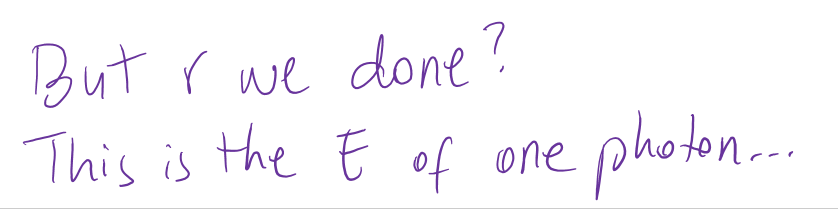 But r we done?
This is the E of one photon...